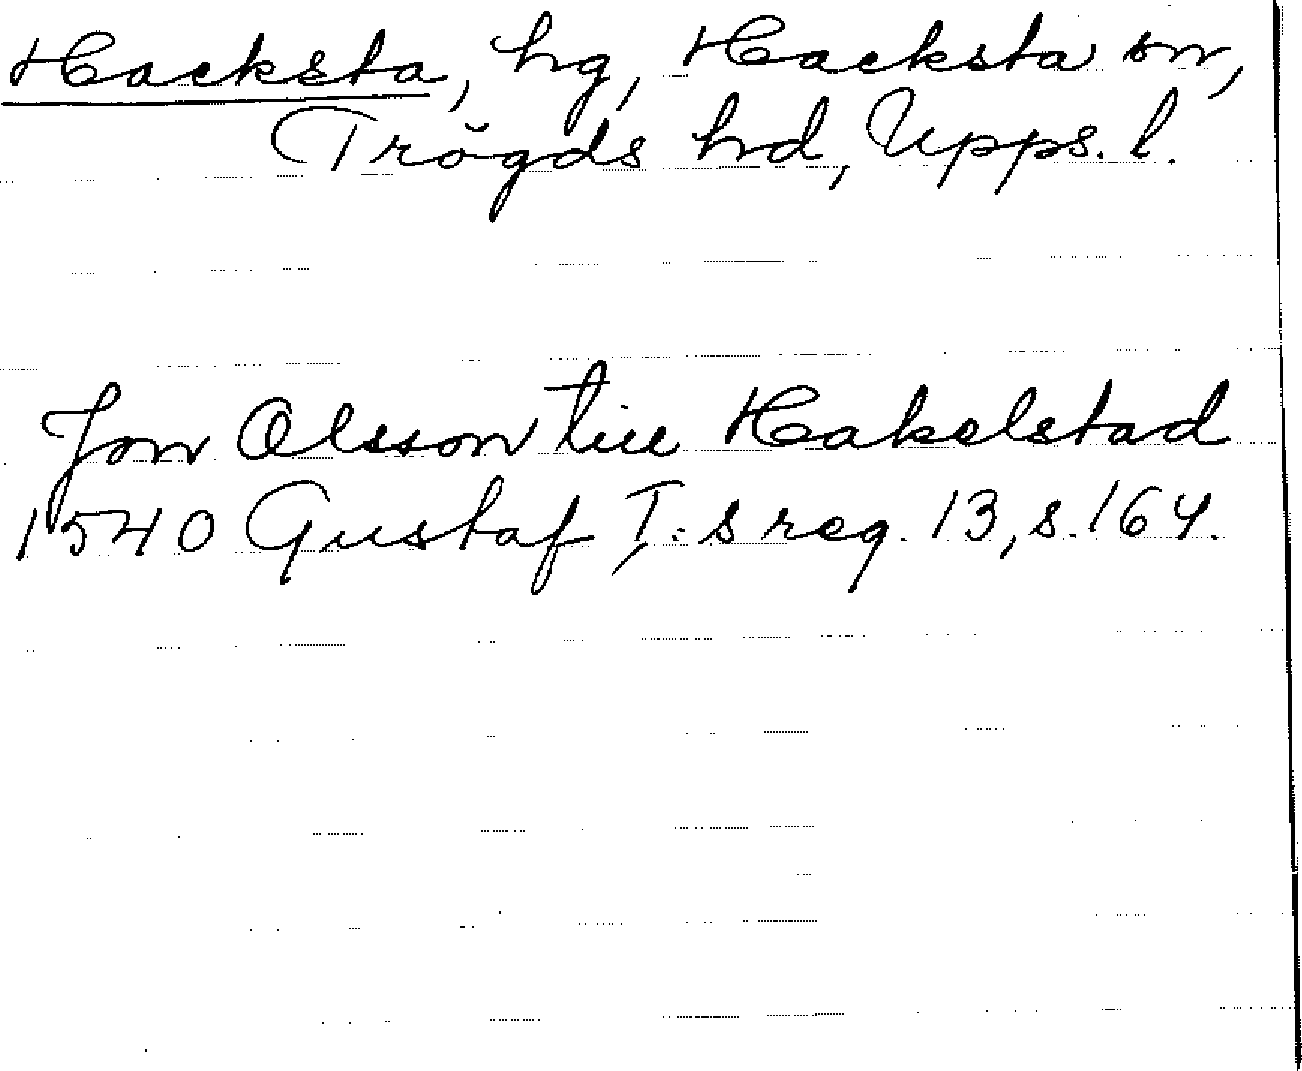 Hacksta, hg, Hacksta sn,
Trögds hd, Upps. l.
Jon Olsson till Hakelstad
1540 Gustaf I:s reg. 13, s. 164.